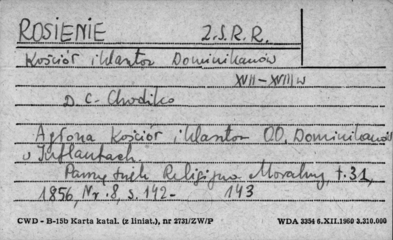 ROSIENIE Z.S.R.R.
Kościół i klasztor Dominikanów
XVII-XVIII w
D. C. Chodźko
Agłona Kościół i klasztor OO. Dominikanów
w Inflantach.
Pamiętnik Religijno Moralny, t. 31,
1856, Nr. 8, s. 142- 143
CWD - B-15b Karta katal. (z liniat.), nr 2731/ZW/P WDA 3354 6.XII.1960 3.310.000